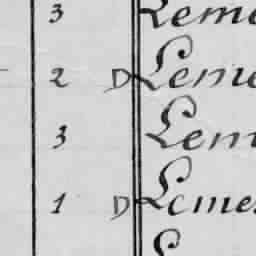 3 Leme
2 D Leme
3 Lem
1 D Lemes